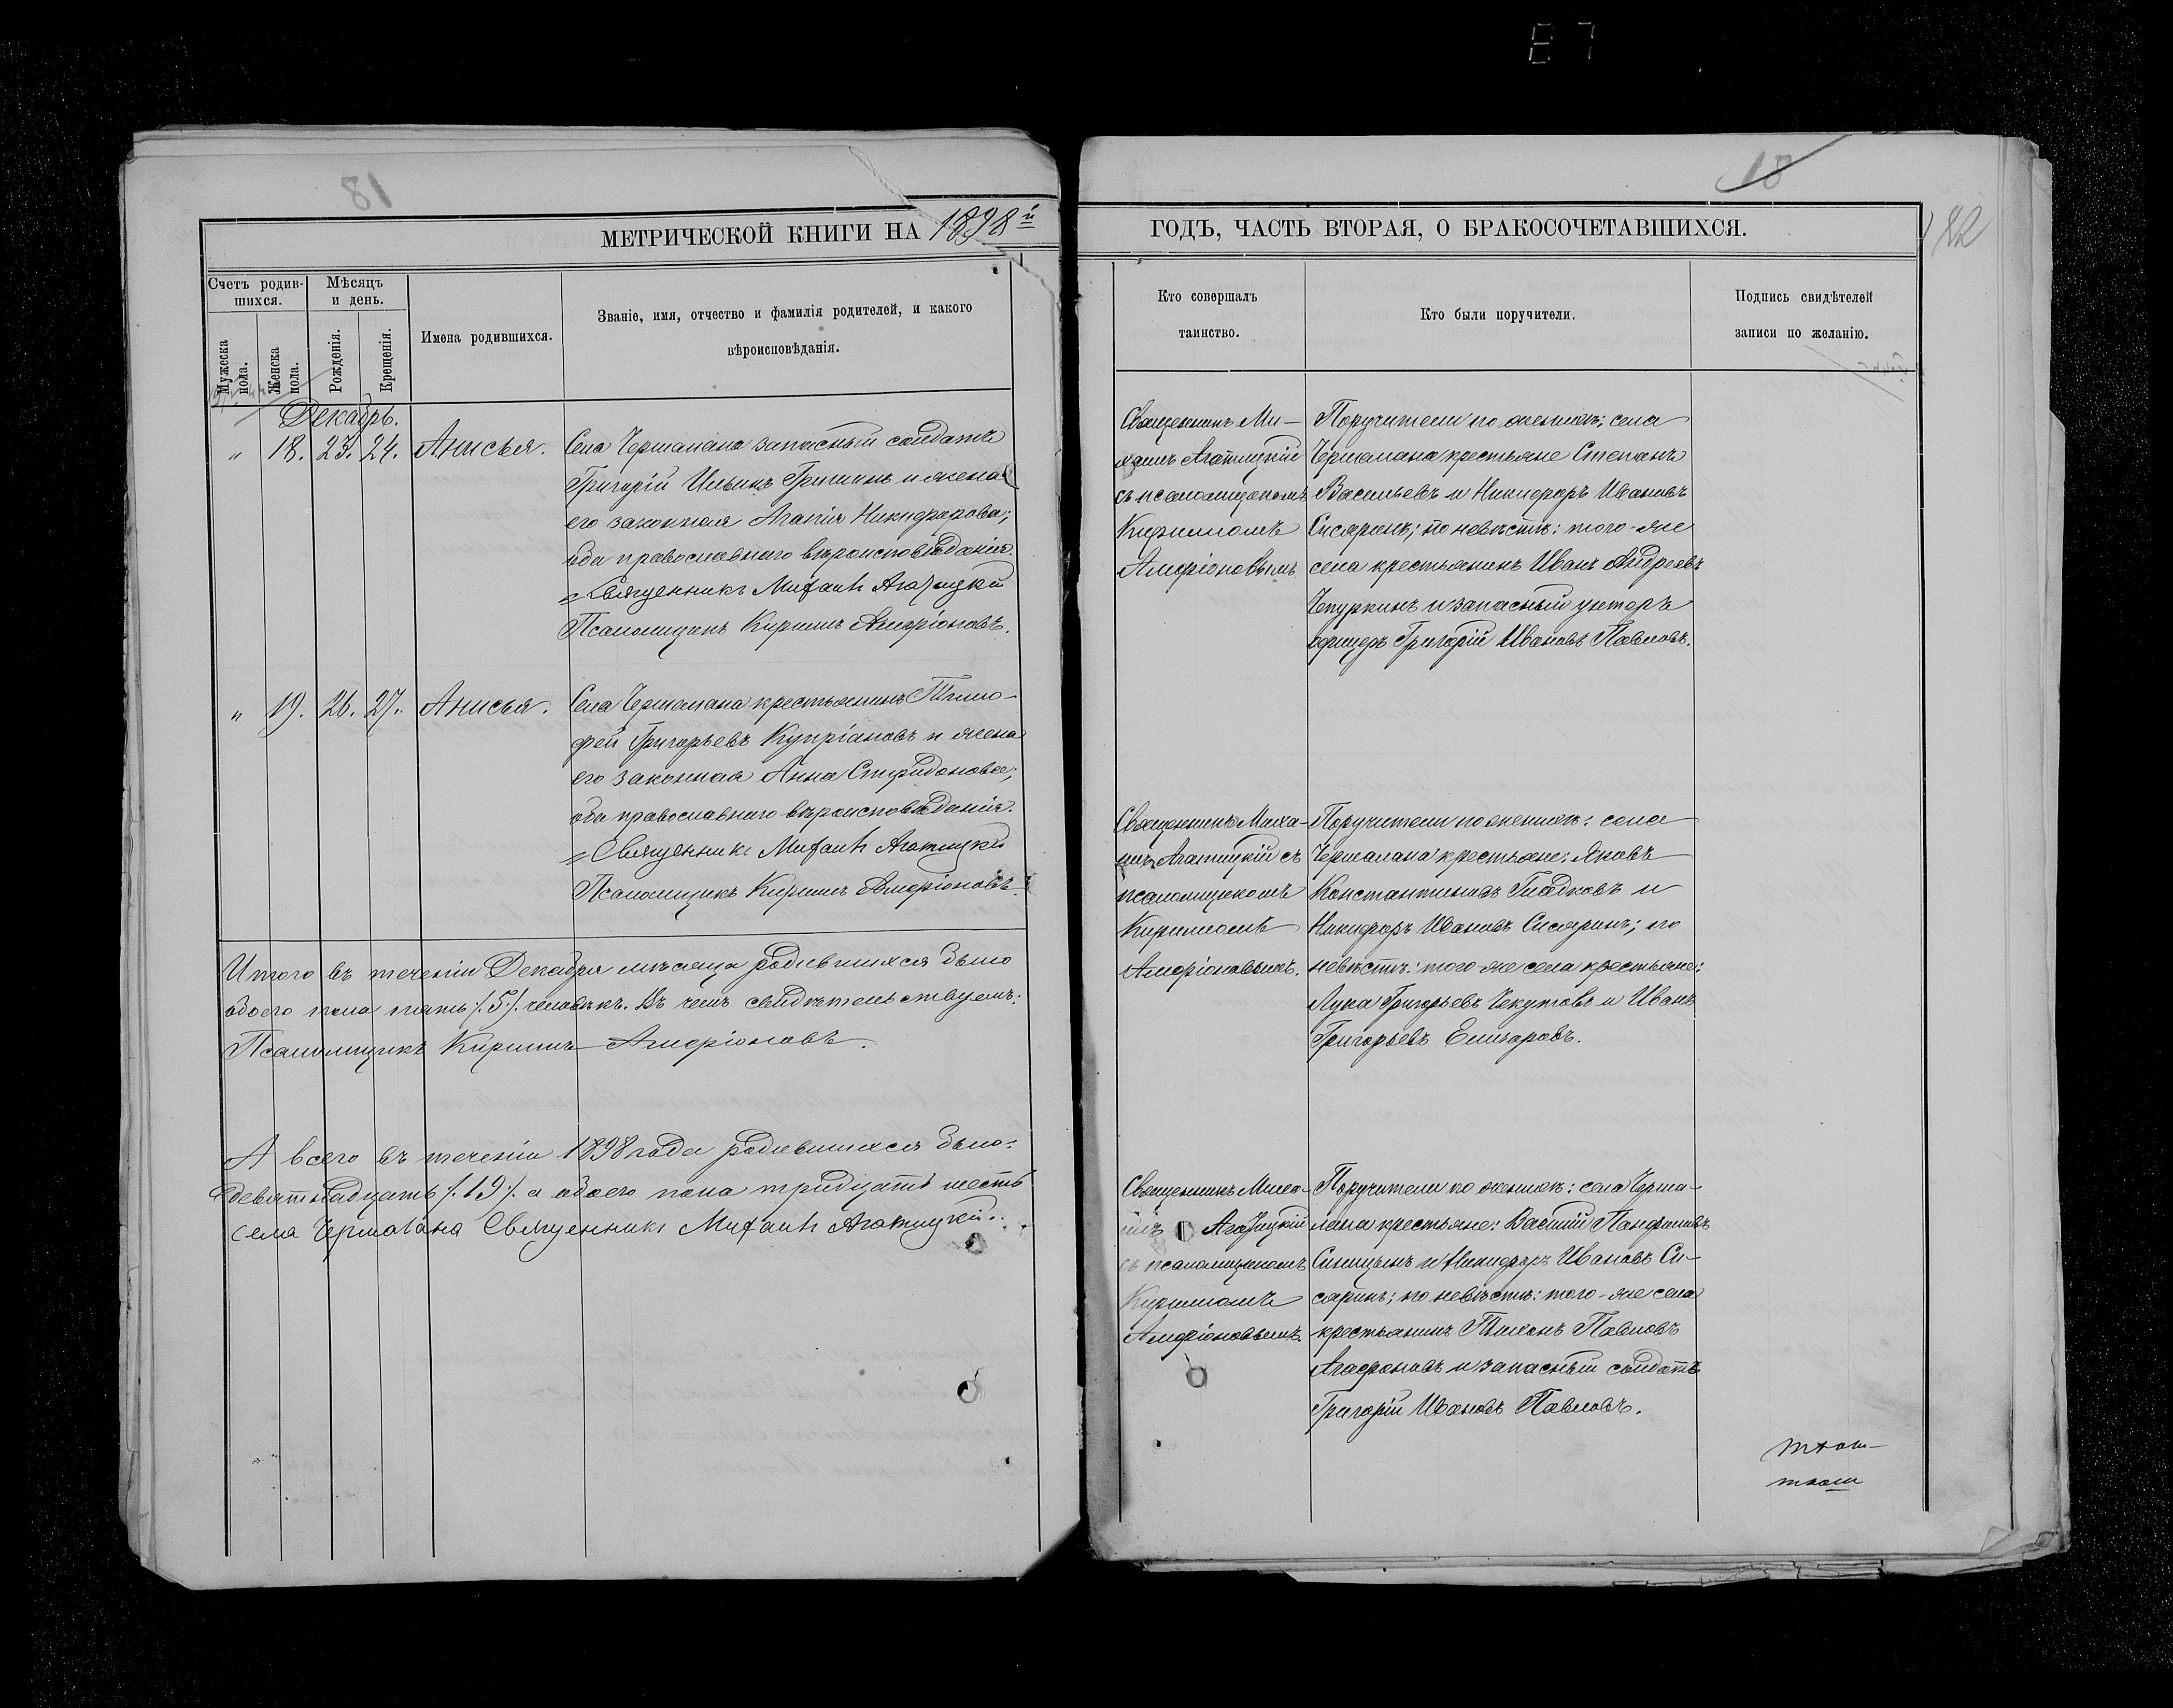 81
МЕТРИЧЕСКОЙ КНИГИ НА 1898 й
Счетъ родив-
шихся.
Мѣсяцъ
и день.
Мужеска
пола.
Женска
пола.
Рожденія.
Крещенія.
Имена родившихся.
Званіе, имя, отчество и фамилія родителей, и какого
вѣроисповѣданія.
Декабрь.
" 18. 23. 24. Анисья.
Села Чермалана запасный солдатъ
Григорій Ильинъ Гришинъ и жена
его законная Агапія Никифорова;
оба православнаго вѣроисповѣданія.
Священникъ Михаилъ Агатицкій
Псаломщикъ Кириллъ Амфіоновъ.
" 19. 26. 27. Анисья.
Села Чермалана крестьянинъ Тимо-
фей Григорьевъ Купріановъ и жена
его законная Анна Спиридонова;
оба православнаго вѣроисповѣданія.
Священникъ Михаилъ Агатицкій
Псаломщикъ Кириллъ Амфіоновъ.
Итого въ теченіи Декабря мѣсяца родившихся было
обоего пола пять /.5./ человѣкъ. Въ чемъ свидѣтельствуемъ:
Псаломщикъ Кириллъ Амфіоновъ.
А всего въ теченіи 1898 года родившихся было:
девятнадцать /.19./ а обоего пола тридцать шесть
села Чермалана Священникъ Михаилъ Агатицкій.
18
182
ГОДЪ, ЧАСТЬ ВТОРАЯ, О БРАКОСОЧЕТАВШИХСЯ.
Кто совершалъ
таинство.
Кто были поручители.
Подпись свидѣтелей
записи по желанію.
Священникъ Ми-
хаилъ Агатицкій
съ псаломщикомъ
Кирилломъ
Амфіоновымъ
Поручители по женихѣ: села
Чермалана крестьяне Степанъ
Васильевъ и Никифоръ Ивановъ
Сисаринъ; по невѣстѣ: того-же
села крестьянинъ Иванъ Андреевъ
Чепуркинъ и запасный унтеръ
офицеръ Григорій Ивановъ Павловъ.
Священникъ Миха-
илъ Агатицкій съ
псаломщикомъ
Кирилломъ
Амфіоновымъ.
Поручители по женихѣ: села
Чермалана крестьяне: Яковъ
Константиновъ Гладковъ и
Никифоръ Ивановъ Сисаринъ; по
невѣстѣ: того-же села крестьяне:
Лука Григорьевъ Чекутовъ и Иванъ
Григорьевъ Елизаровъ.
Священникъ Миха-
илъ Агатицкій
съ псаломщикомъ
Кирилломъ
Амфіоновымъ.
Поручители по женихѣ: села Черма-
лана крестьяне: Василій Панфиловъ
Синицынъ и Никифоръ Ивановъ Си-
саринъ; по невѣстѣ: того-же села
крестьянинъ Тихонъ Павловъ
Агафоновъ и запасный солдатъ
Григорій Ивановъ Павловъ.